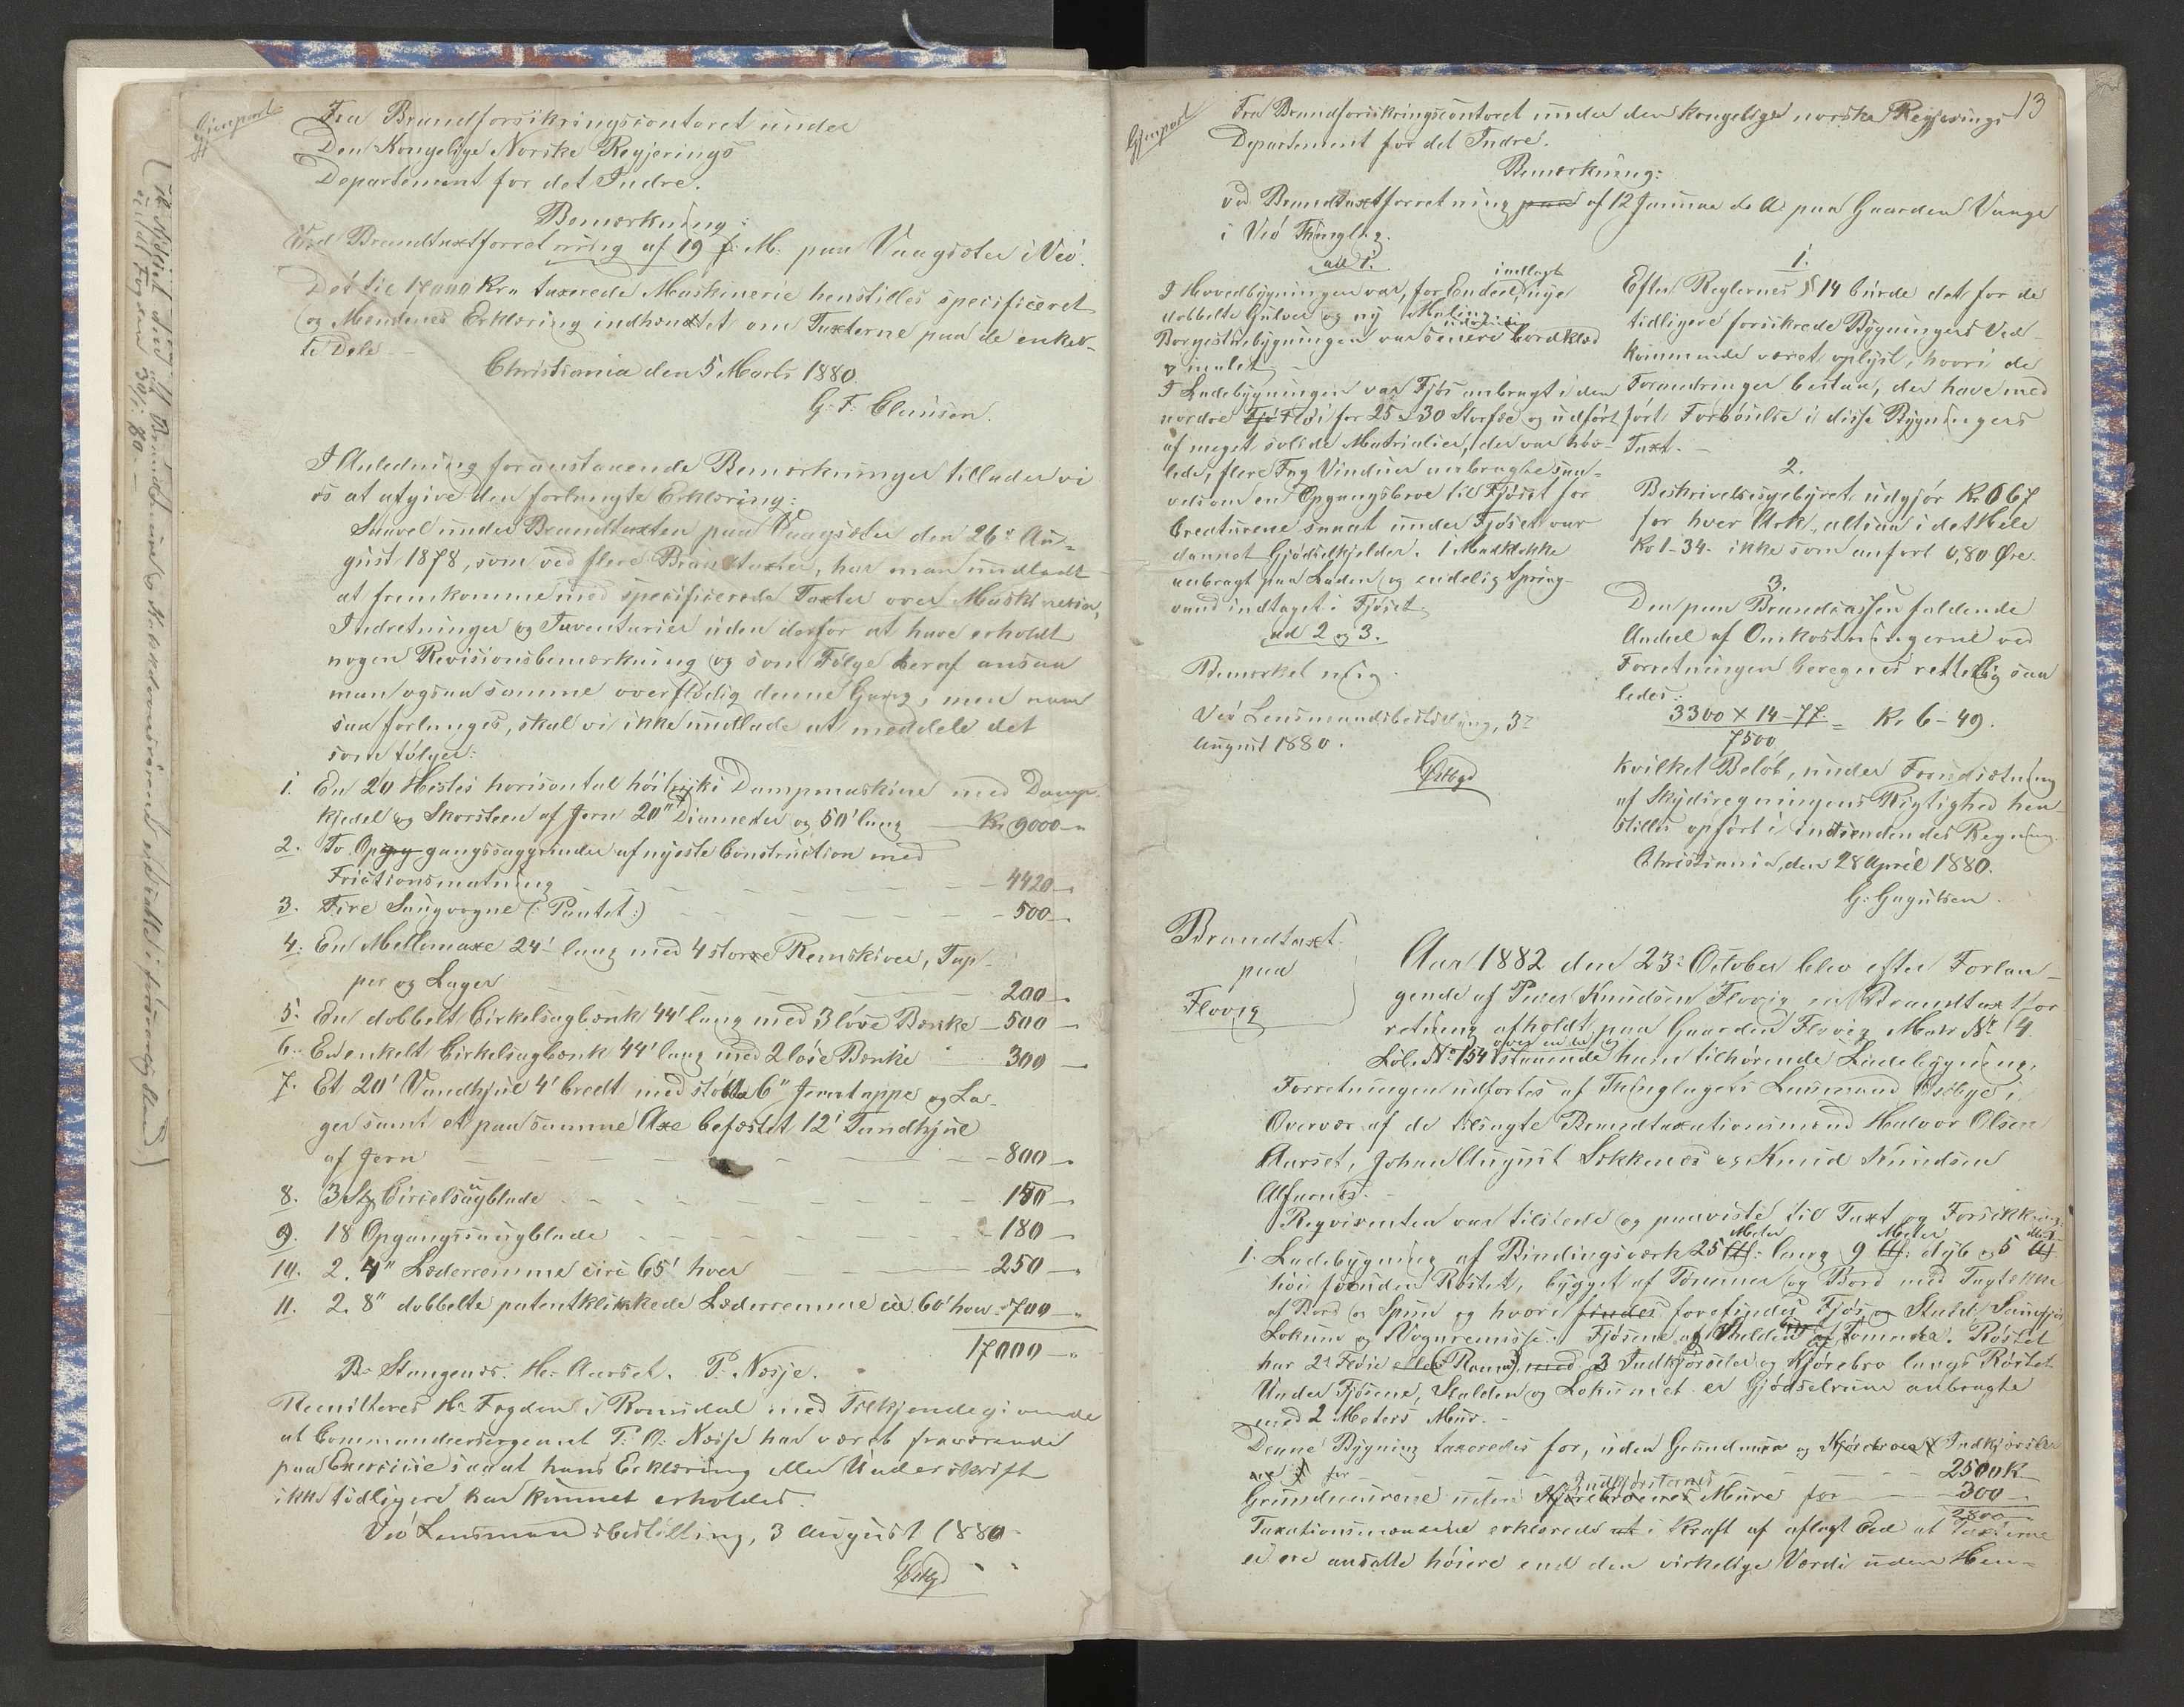 Gjenpart
Fra Brandforsikringscontoret under
Den Kongelige Norske Regjerings
Departement for det Indre.
Bemærkning:
Ved Brandtaxtforretning af 19 f. M. paa Vaagsæter i Veø.
Det til 17000 Kr. taxerede Maskineri henstilles specificeret
og Mændenes Erklæring indhændtet om Taxterne paa de enkel-
te Dele
Christiania den 5 Marts 1880.
G. F. Clausen.
I Anledning foranstaaende Bemærkninger tillader vi
os at afgive den forlangte Erklæring:
Saavel under Brandtaxten paa Vaagsæter den 26de Au-
gust 1878, som ved flere Brandtaxter, har man undladt
at fremkomme med specificerede Taxter over Maskinerier,
Indretninger og Inventarier uden derfor at have erholdt
nogen Revisionsbemærkning og som Følge heraf ansaa
man ogsaa samme overflødig denne Gang, men naar
saa forlanges, skal vi ikke undlade at meddele det
som følger:
1. En 20 Hestes horisontal høitryks Dampmaskine med Damp-
kjedel og Skorsteen af Jern 20" Diameter og 50' lang Kr 9000
2. To Opgangssaggrinder af nyeste Construction med
Frictionsmatning 4420
3. Fire Saugvogne (: Pantet :) 500
4. En Mellemaxe 24' lang med 4 store Remskiver, Tap-
per og Lager 200
5. En dobbelt Cirkelsagbænk 44' lang med 3 løse Bænke 500
6. En enkelt Cirkelsagbænk 44' lang med 2 løse Bænke 300
7. Et 20' Vandhjul 4' bredt med støbte 6" Jerntappe og La-
ger samt et paa samme Axe befæstet 12' Tandhjul
af Jern 800
8. 3 Stk Circelsaugblade 150
9. 18 Opgangssaugblade 180
10. 2. 4" Læderremme circ 65' hver 250
11. 2. 8" dobbelte patentklinkede Læderremme cir. 60' hver 700
17000
B. Stangenes. H. Aarset. P. Næsje.
Remitteres Hr Fogden i Romsdal med Tilkjendegivende
at Commandeersergeant P. O. Næsje har været fraværende
paa Exersice saaat hans Erklæring eller Underskrift
ikke tidligere har kunnet erholdes.
Veø Lensmandsbestilling, 3 August 1880
Østbye
13
Gjenpart
Fra Brandforsikringscontoret under den kongelige norske Regjerings
Departement for det Indre.
Bemærkning:
ved Brandtaxtforretning paa af 12 Januar d. A. paa Gaarden Vange
i Veø Thinglag.
ad 1.
I Hovedbygningen var, for Enden, indlagt nye
dobbelte Gulver og ny Maling
Borgestuebygningen var senere udvendig bordklæd
& malet
I Ladebygningen var Fjøs anbragt i den
nordre Fjø Fløi for 25 a 30 Storfæ og udført
af meget solide Matrialier, der var høv-
lede, flere Fag Vinduer anbragte saa-
velsom en Opgangsbroe til Fjøset for
Creaturene samt under Fjøset var
dannet Gjødselkjelder. 1 Madklokke
anbragt paa Laden og endelig Spring-
vand indtaget i Fjøset.
ad 2 og 3.
Bemærket rigtig.
Veø Lensmandsbestilling, 3de
August 1880.
Østbye
1.
Efter Reglernes § 14 burde det for de
tidligere forsikrede Bygningers Ved-
kommende været oplyst, hvori de
Forandringer bestaa, der have med-
ført Forhøielse i disse Bygningers
Taxt.
2.
Beskrivelsesgebyret udgjør Kr. 0 67
for hver Ark, altsaa i det Hele
Kr 1-34. ikke som anført 0,80 Øre.
3.
Den paa Brandcassen faldende
Andeel af Omkostningerne ved
Forretningen beregnes rettelig saa
ledes:
3300 X 14-77. = Kr. 6-49.
7500
hvilket Beløb, under Forudsætning
af Skydsregningens Rigtighed hen-
stilles opført i indsendendes Regning.
Christiania, den 28 April 1880.
G. Gagulsen.
Brandtaxt
paa
Flovig
Aar 1882 den 23de October blev efter Forlan-
gende af Peder Knudsen Flovig en Brandtaxtfor-
retning afholdt paa Gaarden Flovig Matr Nr 14
Løb. No 154 over en der staaende ham tilhørende Ladebygning.
Forretningen udførtes af Thinglagets Lensmand Østbye i
Overvær af de edsvagte Brandtaxationsmænd Halvor Olsen
Aarset, Johan August Sekkenes og Knud Knudsen
Alfarnes.
Reqvirenten var tilstede og paaviste til Taxt og Forsikkring:
1. Ladebygning af Bindingsværk 25 Meter Al: lang 9 Meter Al: dyb og 5 Meter Al:
høi foruden Røstet, bygget af Tømmer og Bord med Tagtække
af Bord og Spon og hvori findes forefindes Fjøs og Stald, Saufjøs
Lokum og Vognremisse. Fjøsene og Stalden er af Tømmer. Røstet
har 2de Fløie eller (Ramer) med 3 Indkjørseler og Kjørebro langs Røstet
Under Fjøsene, Stalden og Lokumet er Gjødselrum anbragte
med 2 Meters Mur.
Denne Bygning taxeredes for, uden Grundmure og Kjørebroer & Indkjørsler
for 2500 K
Grundmurene uden Kjørebroernes Indkjørslernes Mure for 300
2800
Taxationsmændene erklærede at i Kraft af aflagt Eed at Taxterne
ei ere ansatte høiere end den virkelige Værdi uden Hen-